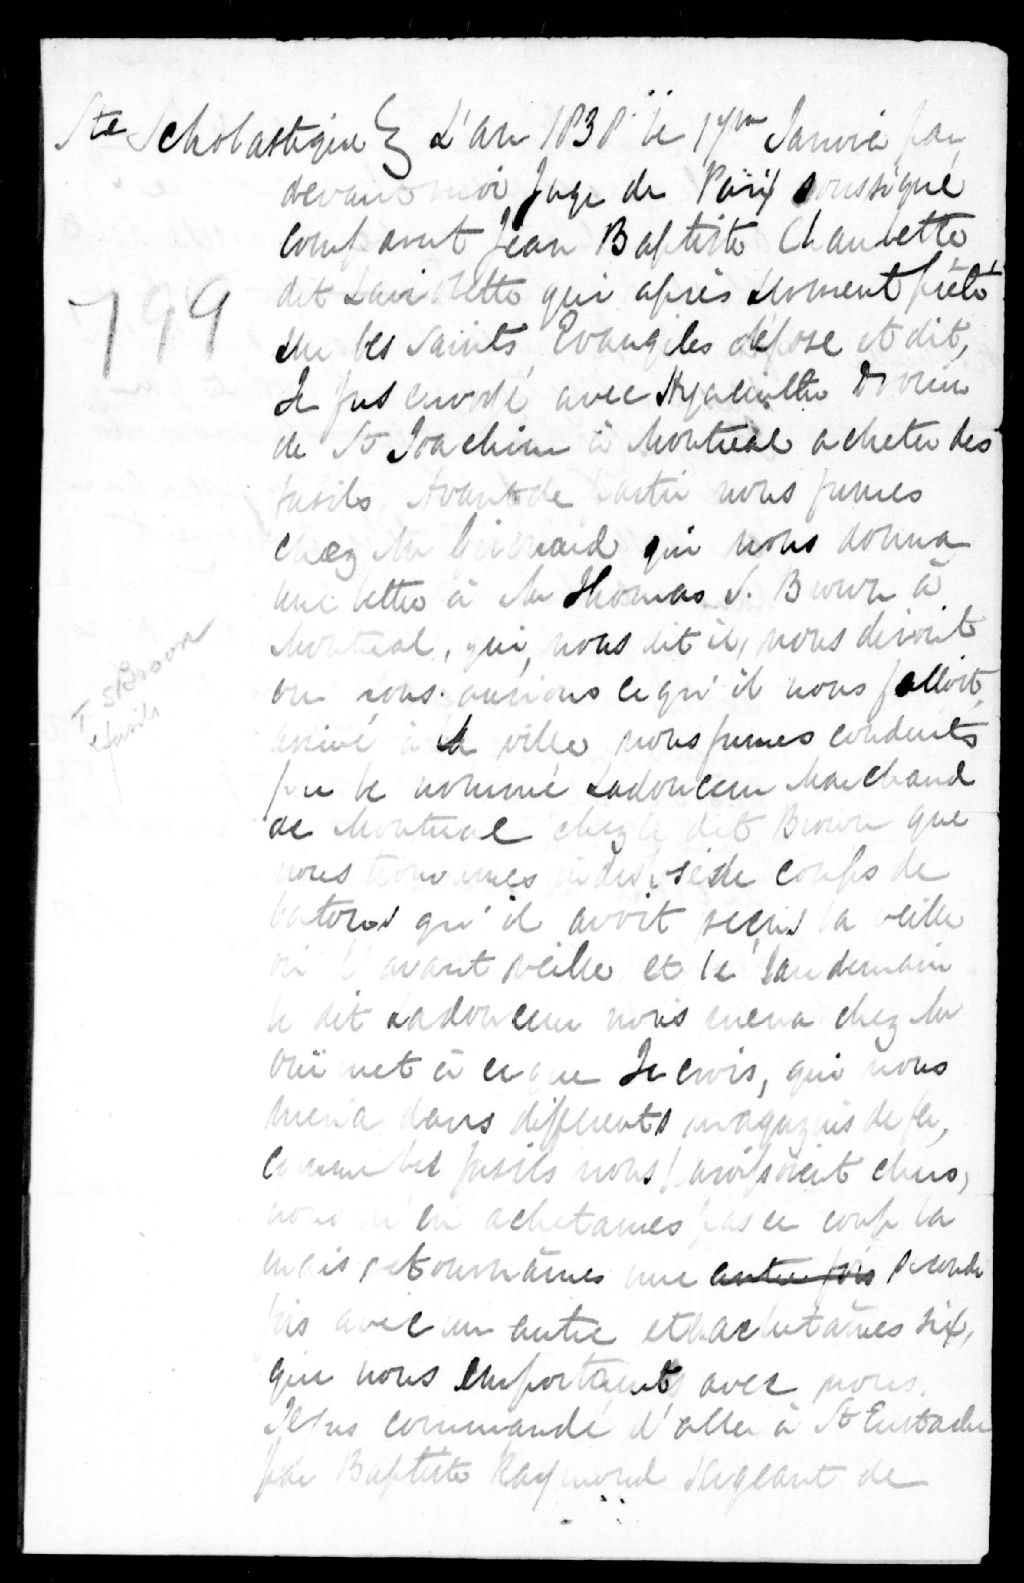 Ste Scholastique } L'an 1838 le 17me Janvier par
devant moi Juge de Paix soussigné
comparut Jean Baptiste Chaurette
dit Laviolette qui après serment prêté
sur les Saints Evangiles dépose et dit,
799
Je fus envoyé avec Hyacinthe Drouin
de St Joachim à Montreal acheter des
fusils. Avant de partir nous fumes
chez Mr Girouard qui nous donna
une lettre à Mr Thomas S. Brown à
Montreal, qui, nous dit il, nous diroit
T. S Brown
fusils
ou nous aurions ce qu'il nous falloit.
arrivé à la ville nous fumes conduits
par le nommé Ladouceur Marchand
de Montreal chez le dit Brown que
nous trouvames de coups de
batons qu'il avoit reçus la veille
ou l'avant veille et le landemain
le dit Ladouceur nous mena chez Mr
Ouimet à ce que Je crois, qui nous
mena dans differents magazins de fer,
comme les fusils nous paroissoient chers,
nous n'en achetames pas ce coup la
mais retournâmes une autre fois seconde
fois avec un autre et achetâmes six,
que nous emportames avec nous.
Je fus commandé d'aller à St Eustache
par Baptiste Raymond sergeant de